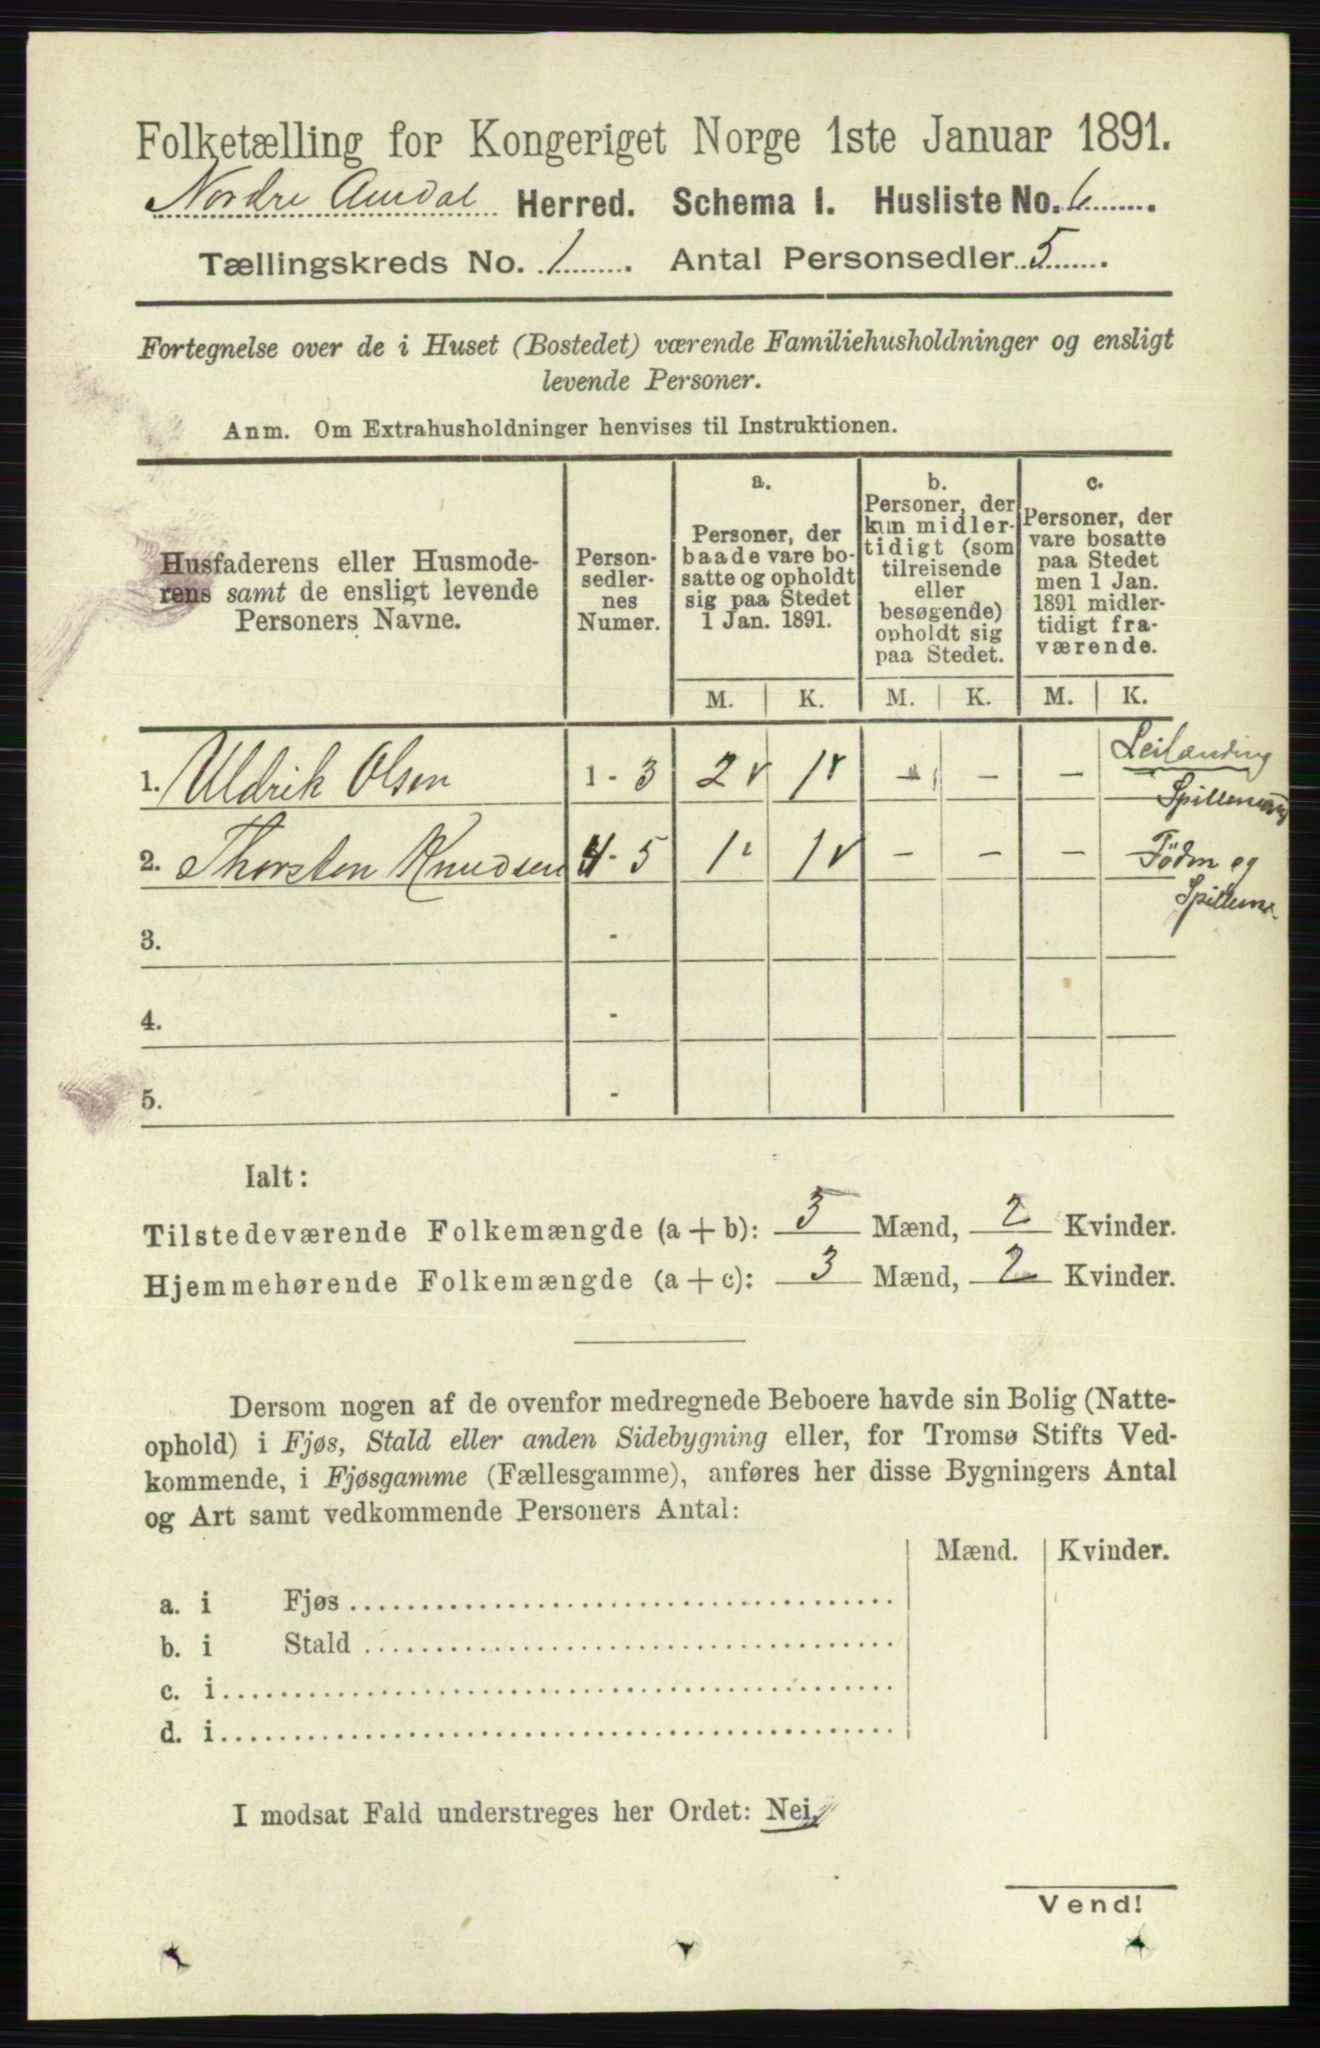 Folketælling for Kongeriget Norge 1ste Januar 1891.
Nordre Aurdal Herred. Schema I. Husliste No. 6
Tællingskreds No. 1. Antal Personsedler 5.
Fortegnelse over de i Huset (Bostedet) værende Familiehusholdninger og ensligt
levende Personer.
Anm. Om Extrahusholdninger henvises til Instruktionen.
Husfaderens eller Husmode-
rens samt de ensligt levende
Personers Navne.
Person-
sedler-
nes
Numer.
a.
Personer, der
baade vare bo-
satte og opholdt
sig paa Stedet
1 Jan. 1891.
b.
Personer, der
kun midler-
tidigt (som
tilreisende
eller
besøgende)
opholdt sig
paa Stedet.
c.
Personer, der
vare bosatte
paa Stedet
men 1 Jan.
1891 midler-
tidigt fra-
værende.
M. K. M. K. M. K.
1. Uldrik Olsen 1 - 3 2 1 - - - Leilænding
Spillemand
2. Thorsten Knudsen 4 - 5 1 1 - - - Föderaadsm og
Spillem.
3. -
4. -
5. -
Ialt:
Tilstedeværende Folkemængde (a + b): 3 Mænd, 2 Kvinder.
Hjemmehørende Folkemængde (a + c): 3 Mænd, 2 Kvinder.
Dersom nogen af de ovenfor medregnede Beboere havde sin Bolig (Natte-
ophold) i Fjøs, Stald eller anden Sidebygning eller, for Tromsø Stifts Ved-
kommende, i Fjøsgamme (Fællesgamme), anføres her disse Bygningers Antal
og Art samt vedkommende Personers Antal:
Mænd. Kvinder.
a. i Fjøs
b. i Stald
c. i
d. i
I modsat Fald understreges her Ordet: Nei.
Vend!